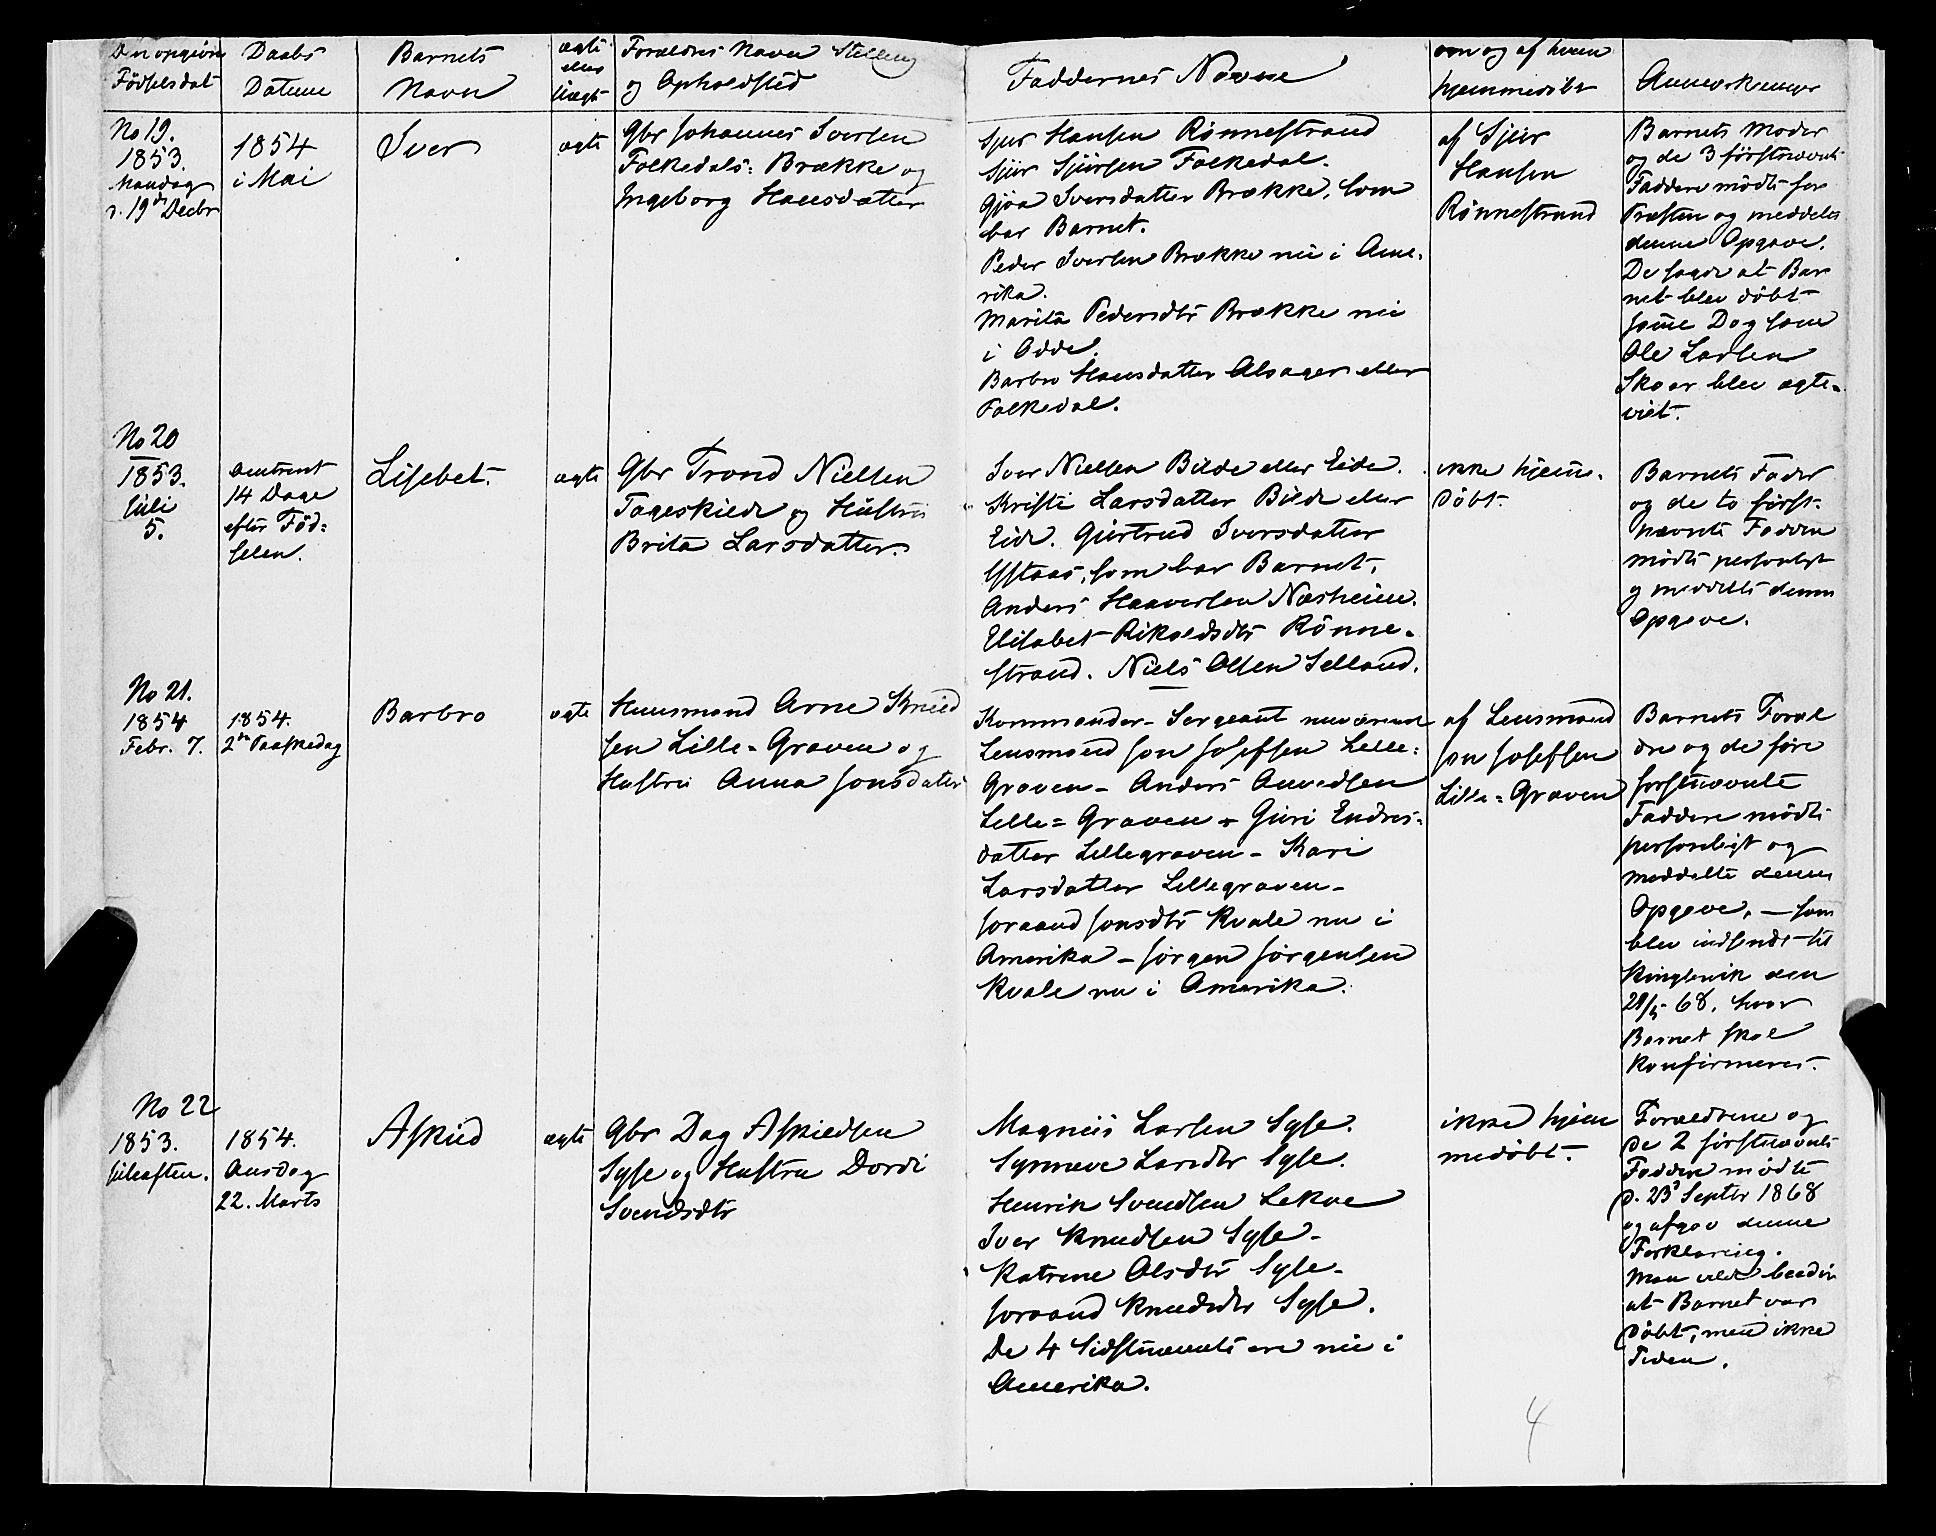 Den opgivne
Fødselsdat
Daabs
Datum
Barnets
Navn
ægte
eller
Uægte
Forældres Navn Stilling
og Opholdsted
Faddernes Navne
om og af hvem
hjemmedöbt
Anmerkninger
No 19.
1853.
Mandag
d. 19de Decbr
1854
i Mai
Iver
ægte
Gbr Johannes Iversen
Folkedals: Brække og
Ingeborg Hansdatter
Sjur Hansen Rønnestrand
Sjur Sjursen Folkedal.
Gjøa Iversdatter Brække, som
bar Barnet.
Peder Iversen Brække nu i Ame-
rika.
Marita Pedersdtr Brække nu
i Odde.
Barbro Hansdatter Alsager eller
Folkedal.
af Sjur
Hansen
Rønnestrand
Barnets Moder
og de 3 förstnævnte
Faddere mødte for
Præsten og meddelte
denne Opgave.
De sagde at Bar
net blev döbt
samme Dag som
Ole Larsen
Skaar blev ægte-
viet.
No 20
1853.
Juli
5.
omtrent
14 Dage
efter Föd-
selen.
Lisebet.
ægte
Gbr Trond Nielsen
Tageskilde og Hustru
Brita Larsdatter.
Iver Nielsen Bilde eller Eide.
Kristi Larsdatter Bilde eller
Eide. Gjertrud Iversdatter
Ystaas, som bar Barnet,
Anders Haaversen Næsheim.
Elisabet Rikoldsdtr Rönne-
strand. Niels Olsen Selland.
ikke hjemme-
döbt.
Barnets Fader
og de to först-
nævnte Faddere
mødte personligt
og meddelte denne
Opgave.
No 21.
1854
Febr. 7.
1854.
2den Paaskedag
Barbro
ægte
Huusmand Arne Knud
sen Lille-Graven og
Hustru Anna Jonsdatter
Kommander-Sergeant nuværende
Lensmand Jon Josefsen Lille-
Graven - Anders Amundsen
Lille-Graven - Guri Endres-
datter Lillegraven - Kari
Larsdatter Lillegraven -
Joraand Jonsdtr Kvale nu i
Amerika - Jörgen Jörgensen
Kvale nu i Amerika.
af Lensmand
Jon Josefsen
Lille-Graven
Barnets Foræl
dre og de fire
förstnævnte
Faddere mødte
personligt og
meddelte denne
Opgave, - som
blev indsendt til
Kinservik den
28/5 68, hvor
Barnet skal
konfirmeres.
No 22
1853.
Juleaften.
1854.
Onsdag
22. Marts
Askild
ægte
Gbr Dag Askildsen
Syse og Hustru Dordi
Svendsdtr
Magnus Larsen Syse.
Synneve Larsdtr Syse.
Henrik Svendsen Lekve
Iver Knudsen Syse -
Katrine Olsdtr Syse -
Joraand Knudsdtr Syse.
De 4 Sidstnævnte ere nu i
Amerika.
ikke hjem
medöbt.
Forældrene og
de 2 förstnævnte
Faddere mødte
d. 23de Septbr 1868
og afgav denne
Forklaring.
Man vilde beedige
at Barnet var
döbt, men ikke
Tiden.
4